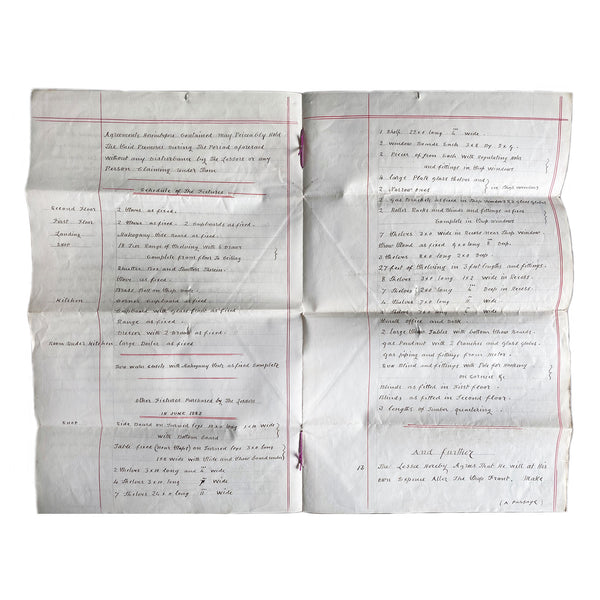 Agreements Hereinbefore Contained May Peaceably Hold
The Said Premises During The Period aforesaid
without any Disturbance by The Lessors or any
Person Claiming Under Them
Schedule of The Fixtures
Second Floor 2 Stoves as fixed.
First Floor 2 Stoves as fixed. 2 Cupboards as fixed.
Landing Mahogany Hat Board as fixed
Shop 18 Tier Range of Shelving with 6 Drawers
Complete from floor to Ceiling
Shutter Box and Shutters Therein
Stove as fixed.
Brass Rod on Shop side
Kitchen Corner Cupboard as fixed
Cupboard with glass front as fixed
Range as fixed
Dresser with 2 Drawers as fixed
Room Under Kitchen Large Boiler as fixed
Two water closets with Mahogany Seats as fixed Complete
Other Fixtures Purchased by The Lessee
18 June 1882
Shop Side Board on Turned legs
with Bottom Board
Table fixed on Turned legs 3 x 0 long
Wide with Slide and
2 Shelves 3 x 10 long Wide
4 Shelves 3 x 10 long Wide
7 Shelves long 11 Wide
1 Shelf long wide.
2 Window Boards Each 3 x 8 by 3 x 9.
2 Pieces of Each with Regulating Rods
and fittings in Shop windows
4 Large Plate glass Shelves and
2 Narrow ones in Shop windows
2 Gas Brackets as fixed in Shop Windows & 2 glass globes
2 Roller Racks and Blinds and fittings as fixed
Complete in Shop Windows
7 Shelves 3 x 0 Wide in Recess near Shop Window
Show Stand as fixed 9 x 0 long 11 Deep.
3 Shelves 8 x 0 long 2 x 0 Deep.
27 feet of Shelving in 3 feet lengths and fittings.
8 Shelves 3 x 0 long 1 x 2 Wide in Recess.
7 Shelves 2 x 0 long Deep in Recess
4 Shelves 7 x 0 long Wide
7 Shelves 3 x 0 long Wide.
Small Office and Desk
2 Large Show Tables with Bottom Show Boards.
Gas Pendant with 2 Branches and glass globes.
Gas piping and fittings from Meter.
Sun Blind and fittings with Pole for Working
on Cornice &c
Blinds as fitted in First floor.
Blinds as fitted in Second floor.
2 lengths of Timber Quartering
And further
12 The Lessee Hereby Agrees That He will at His
own Expense Alter The Shop Front, Make